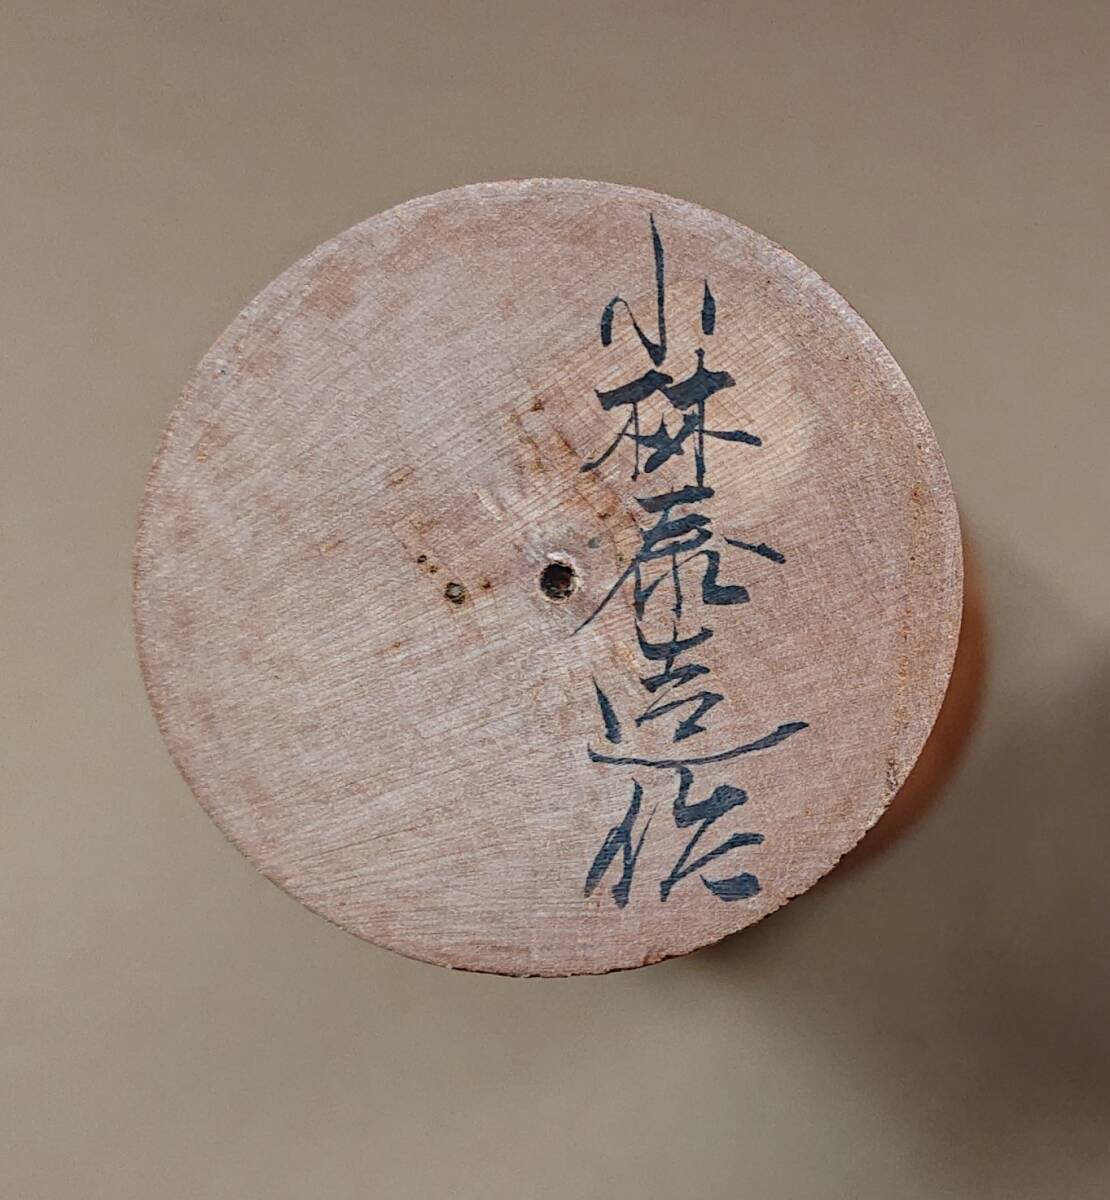 小林泰造作